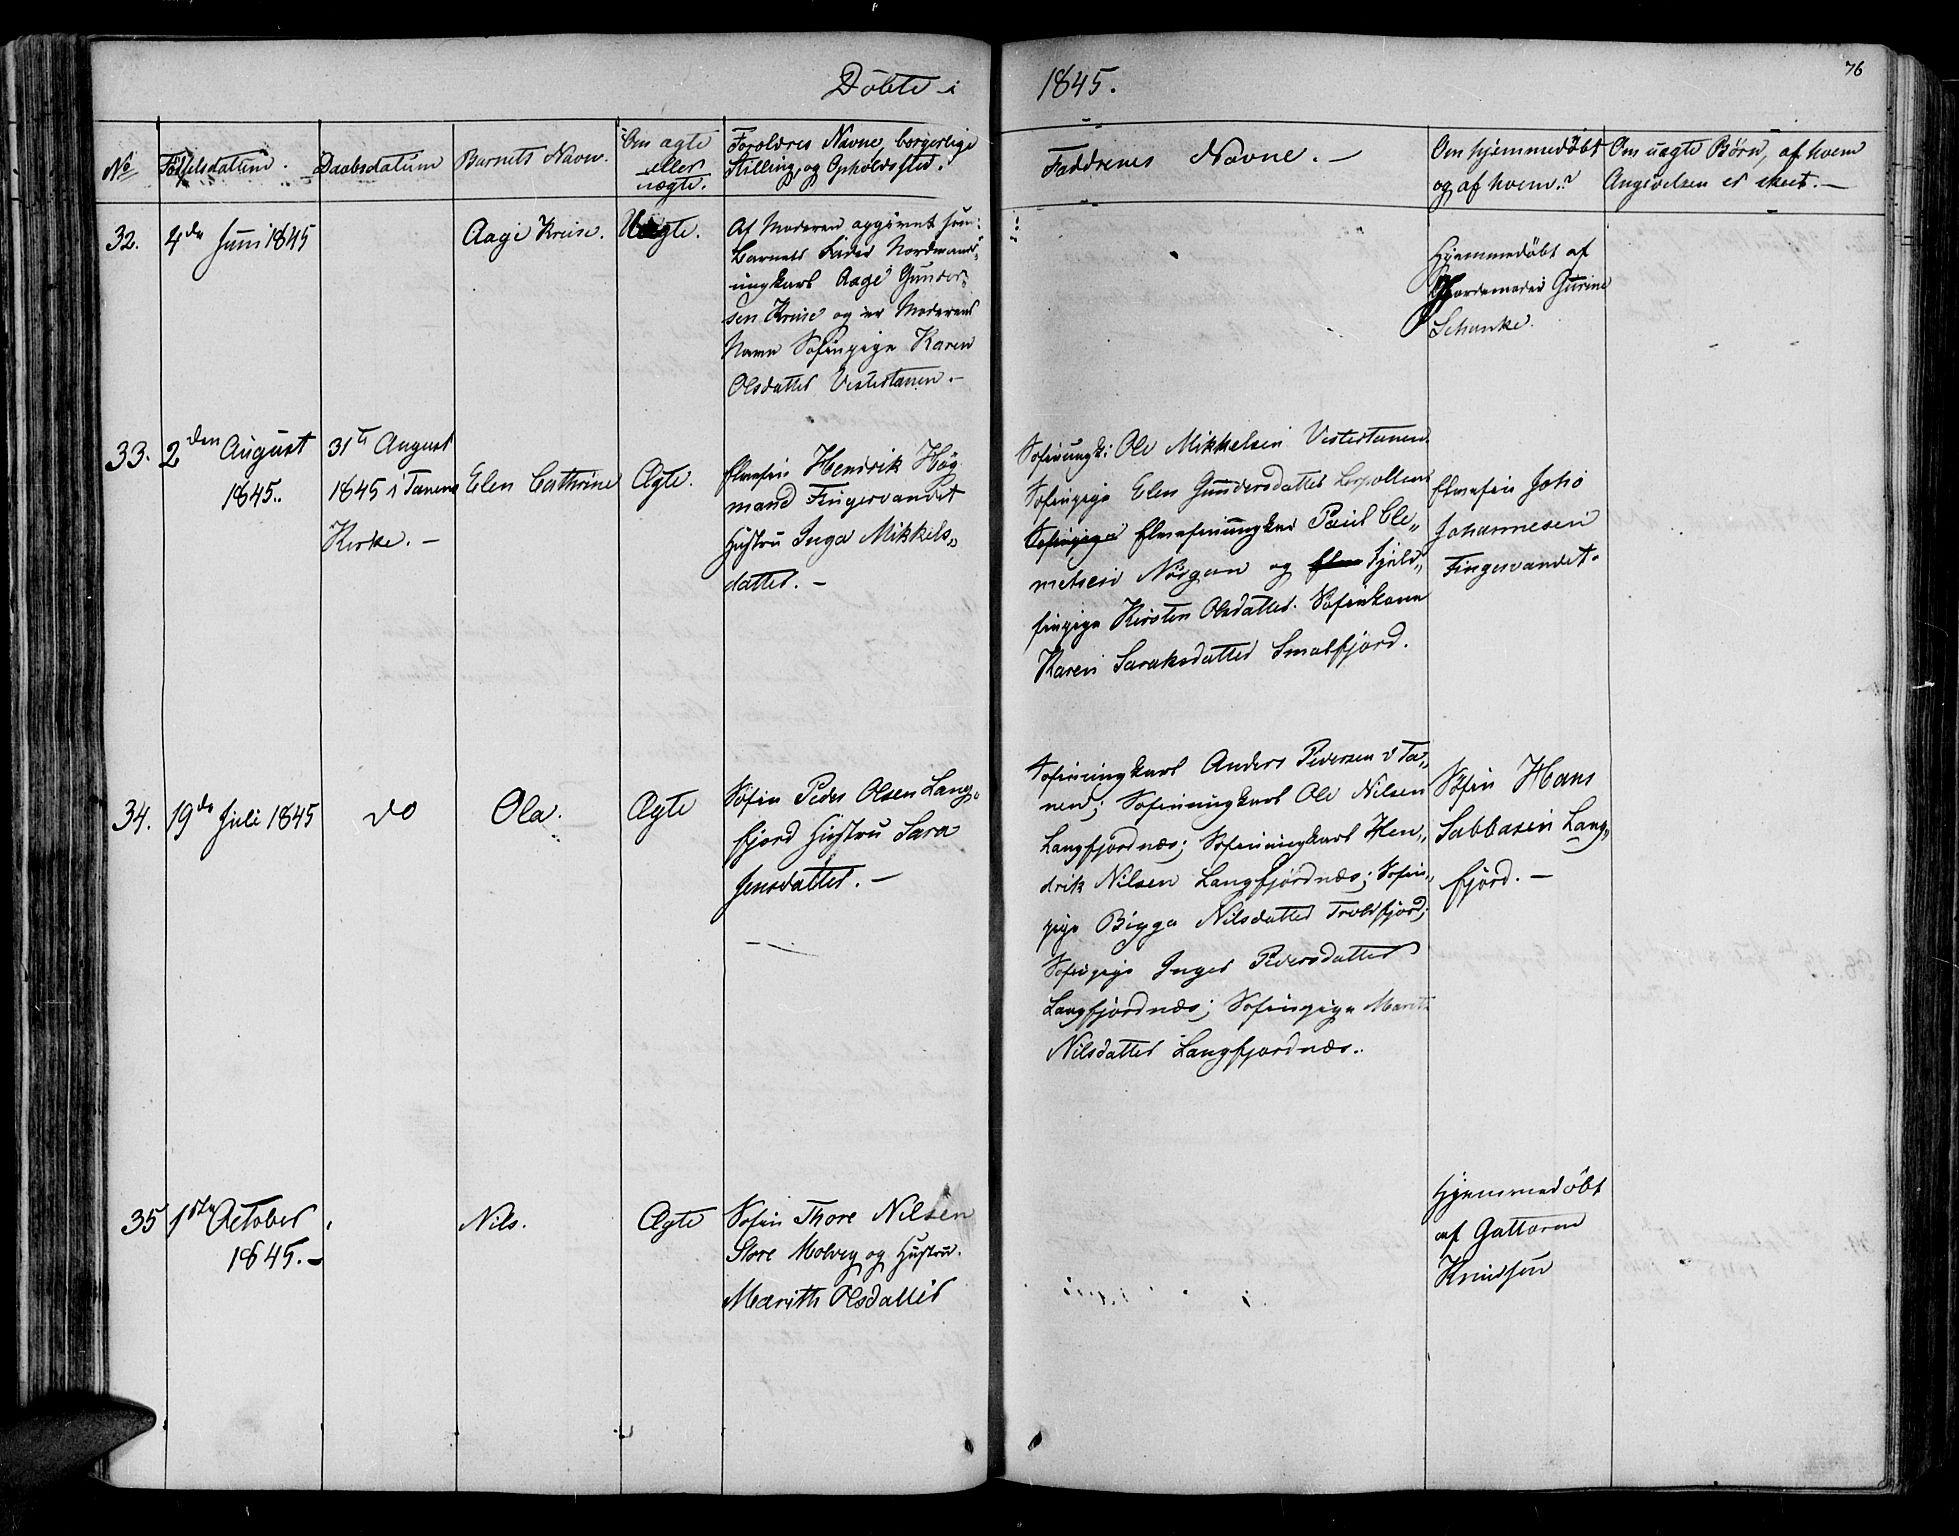 Döbte i 1845.
76
No
Födselsdatum.
Daabsdatum
Barnets Navn.
Om ægte
eller
uægte.
Foroldres Navne, borgerlige
Stilling, og Opholdssted.
Faddrenes Navne. —
Om hjemmedöbt
og af hvem?
Om uægte Börn, af hvem
Angivelsen er skeet. —
32.
4de Juni 1845
Aage Kreise.
Uægte.
Af Moderen opgivet som
Barnets Fader Nordmands
ungkarl Aage Gunder„
sen Kreise og er Moderens
Navn Söfinpige Karen
Olsdatter Vestertanen. —
Hjemmedöbt af
Jordemoder Gurine
Schanke.
33.
2den August
1845..
31te August
1845 i Tanens
Kirke. —
Elen Cathrine
Ægte.
Elvefin Hendrik Hög
mand Fingervandet
Hustru Inga Mikkels„
datter. —
Söfinungk: Ole Mikkelsen Vestertanen
Söfinpige Elen Gundersdatter Leerpollen
Söfinpige Elvefinungkarl Paul Cle„
metsen Nörgaon og Elve Fjeld„
finpige Kirsten Olsdatter. Söfinkone
Karen Saraksdatter Smalfjord.
Elvefin Joho
Johannesen
Fingervandet.
34.
19de Juli 1845
do
Ola.
Ægte
Söfin Peder Olsen Lang„
fjord Hustru Sara
Jensdatter. —
Söfinungkarl Anders Pedersen i Ta„
nen; Söfinungkarl Ole Nilsen
Langfjordnæs; Söfinungkarl Hen„
drik Nilsen Langfjordnæs; Söfin„
pige Bigga Nilsdatter Troldfjord;
Söfinpige Inger Pedersdatter
Langfjordnæs; Söfinpige Marit
Nilsdatter Langfjordnæs.
Söfin Hans
Sabbasen Lang„
fjord. —
35
1ste October
1845. —
Nils.
Ægte
Söfin Thore Nilsen
Store Molvig og Hustru
Marith Olsdatter
Hjemmedöbt
af Gattaren
Knudsen